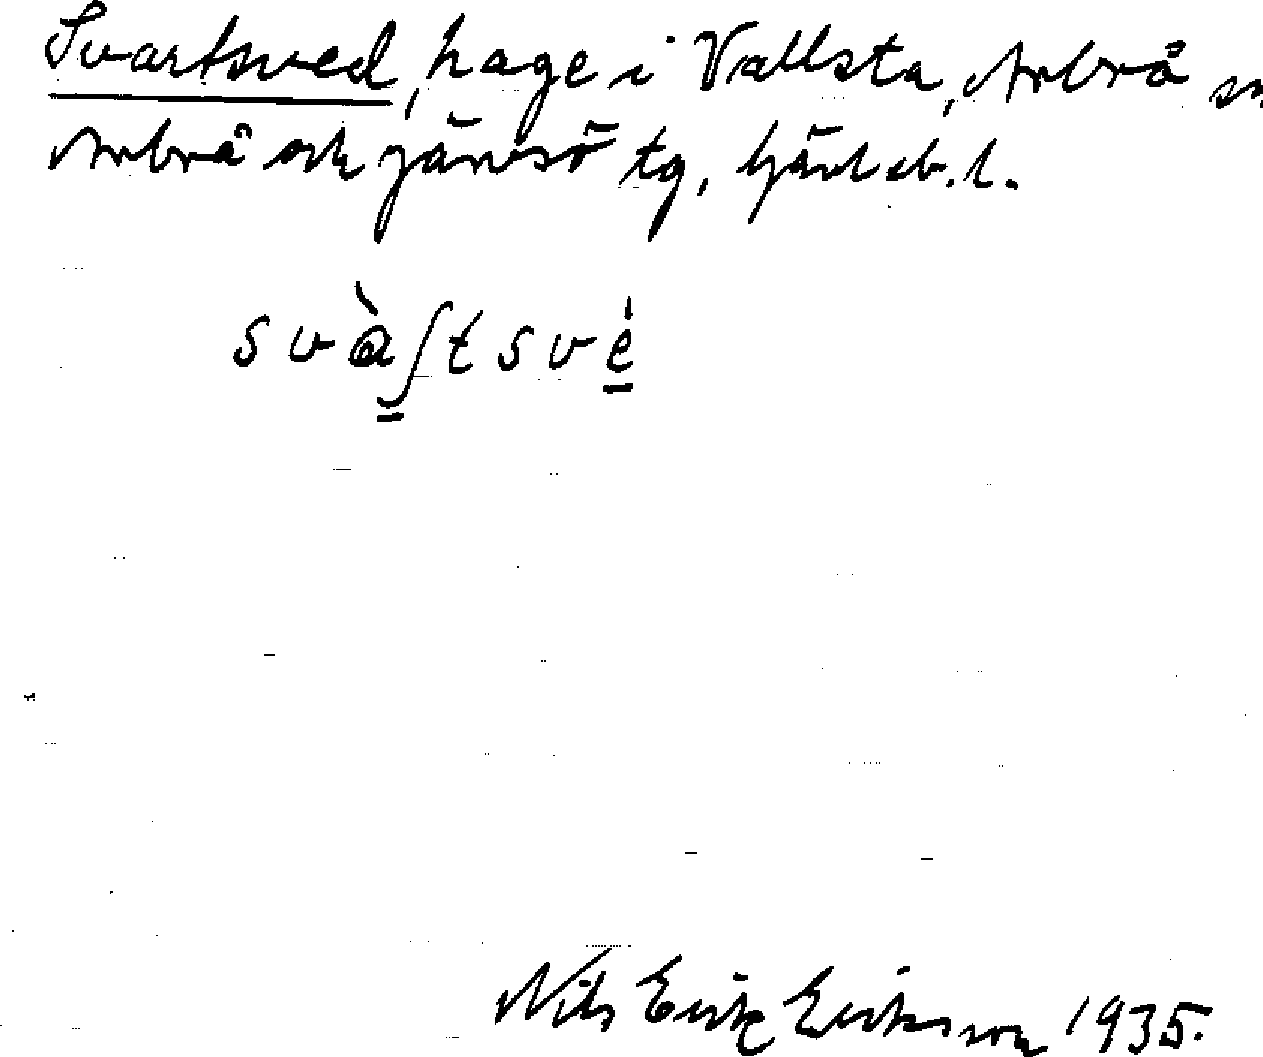 Svartsved, hage i Vallsta, Arbrå sn
Arbrå och Järvsö tg, Gävleb. l.
svàʃtsvé
Nils Erik Eriksson 1935.